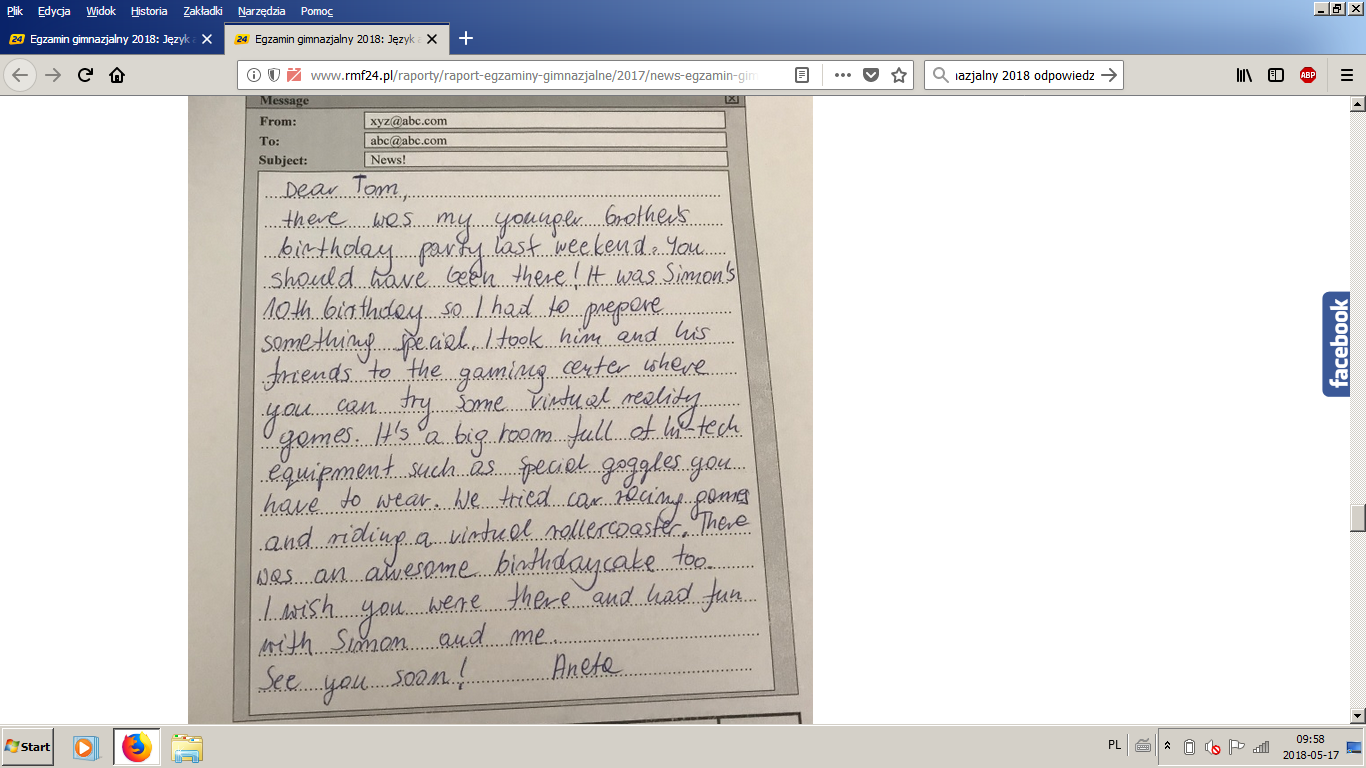 Plik Edycja Widok Historia Zakładki Narzędzia Pomoc
24 Egzamin gimnazjalny 2018: Język
24 Egzamin gimnazjalny 2018: Język
www.rmf24.pl/raporty/raport-egzaminy-gimnazjalne/2017/news-egzamin-gim
nazjalny 2018 odpowiedz
ABP
Message
From: xyz@abc.com
To: abc@abc.com
Subject: News!
Dear Tom,
there was my younger brother's
birthday party last weekend. You
should have been there! It was Simon's
10th birthday so I had to prepare
something special. I took him and his
friends to the gaming center where
you can try some virtual reality
games. It's a big room full of hi-tech
equipment such as special goggles you
have to wear. We tried car racing games
and riding a virtual rollercoaster. There
was an awesome birthdaycake too.
I wish you were there and had fun
with Simon and me.
See you soon! Aneta
facebook
Start
PL
09:58
2018-05-17